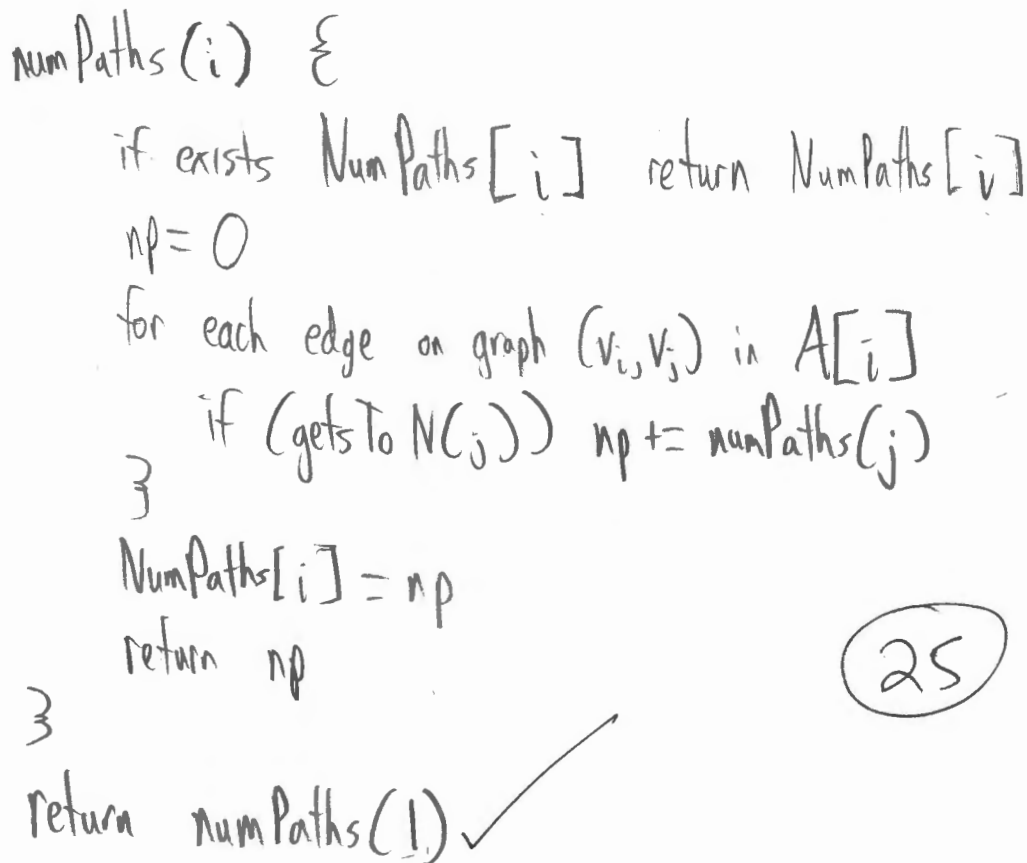 numPaths(i) {
if exists NumPaths[i] return NumPaths[i]
np = 0
for each edge on graph (vi, vj) in A[i]
if (getsToN(j)) np += numPaths(j)
}
NumPaths[i] = np
return np
25
}
return numPaths(1) ✓